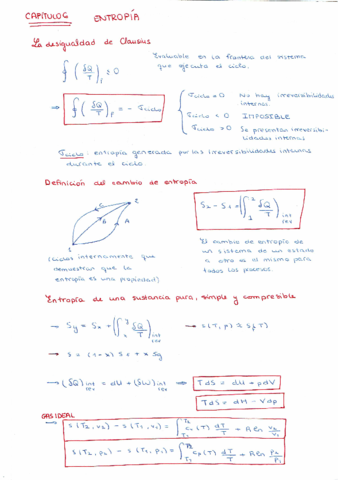 CAPÍTULO 6 ENTROPÍA
La desigualdad de Clausius
∮(δQ/T)_f ≤ 0
Evaluable en la frontera del sistema
que ejecuta el ciclo.
→ ∮(δQ/T)_f = - σciclo
σciclo = 0 No hay irreversibilidades
internas.
σciclo < 0 IMPOSIBLE
σciclo > 0 Se presentan irreversibi-
lidades internas
σciclo: entropía generada por las irreversibilidades internas
durante el ciclo.
Definición del cambio de entropía
2
C
B
A
1
S2 - S1 = (∫₁² δQ/T) int rev
(Ciclos internamente que
demuestran que la
entropía es una propiedad)
El cambio de entropía de
un sistema de un estado
a otro es el mismo para
todos los procesos.
Entropía de una sustancia pura, simple y compresible
→ Sy = Sx + (∫ δQ/T) int rev
→ s(T, p) ≈ sf(T)
→ s = (1-x) sf + x sg
→ (δQ) int rev = dU + (δW) int rev ⇒ TdS = dU + pdV
TdS = dH - Vdp
GAS IDEAL
s(T2, v2) - s(T1, v1) = ∫_T1^T2 cv(T) dT/T + R ln v2/v1
s(T2, p2) - s(T1, p1) = ∫_T1^T2 cp(T) dT/T - R ln p2/p1